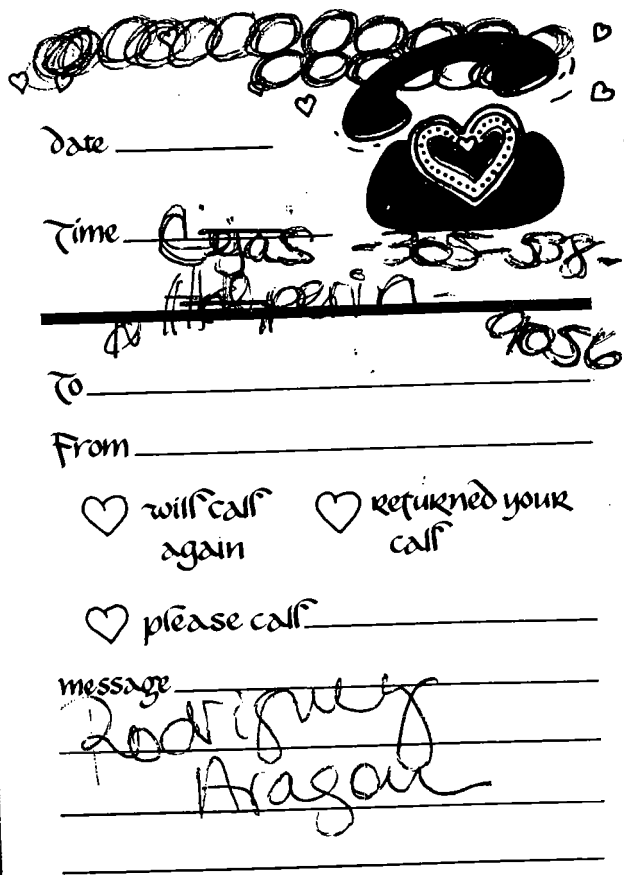 Date
Time Cejas - 305-538-
& Halperin - 9056
To
From
will call again
returned your call
please call
message
Rodriguez
Aragon